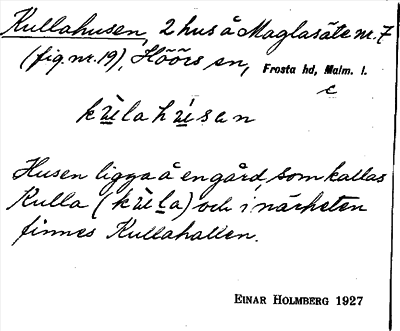 Kullahusen, 2 hus å Maglasäte nr. 7
(fig nr. 19), Höörs sn, Frosta hd, Malm. l.
c
Husen ligga å en gård, som kallas
Kulla ( ) och i närheten
finnes Kullahallen.
EINAR HOLMBERG 1927